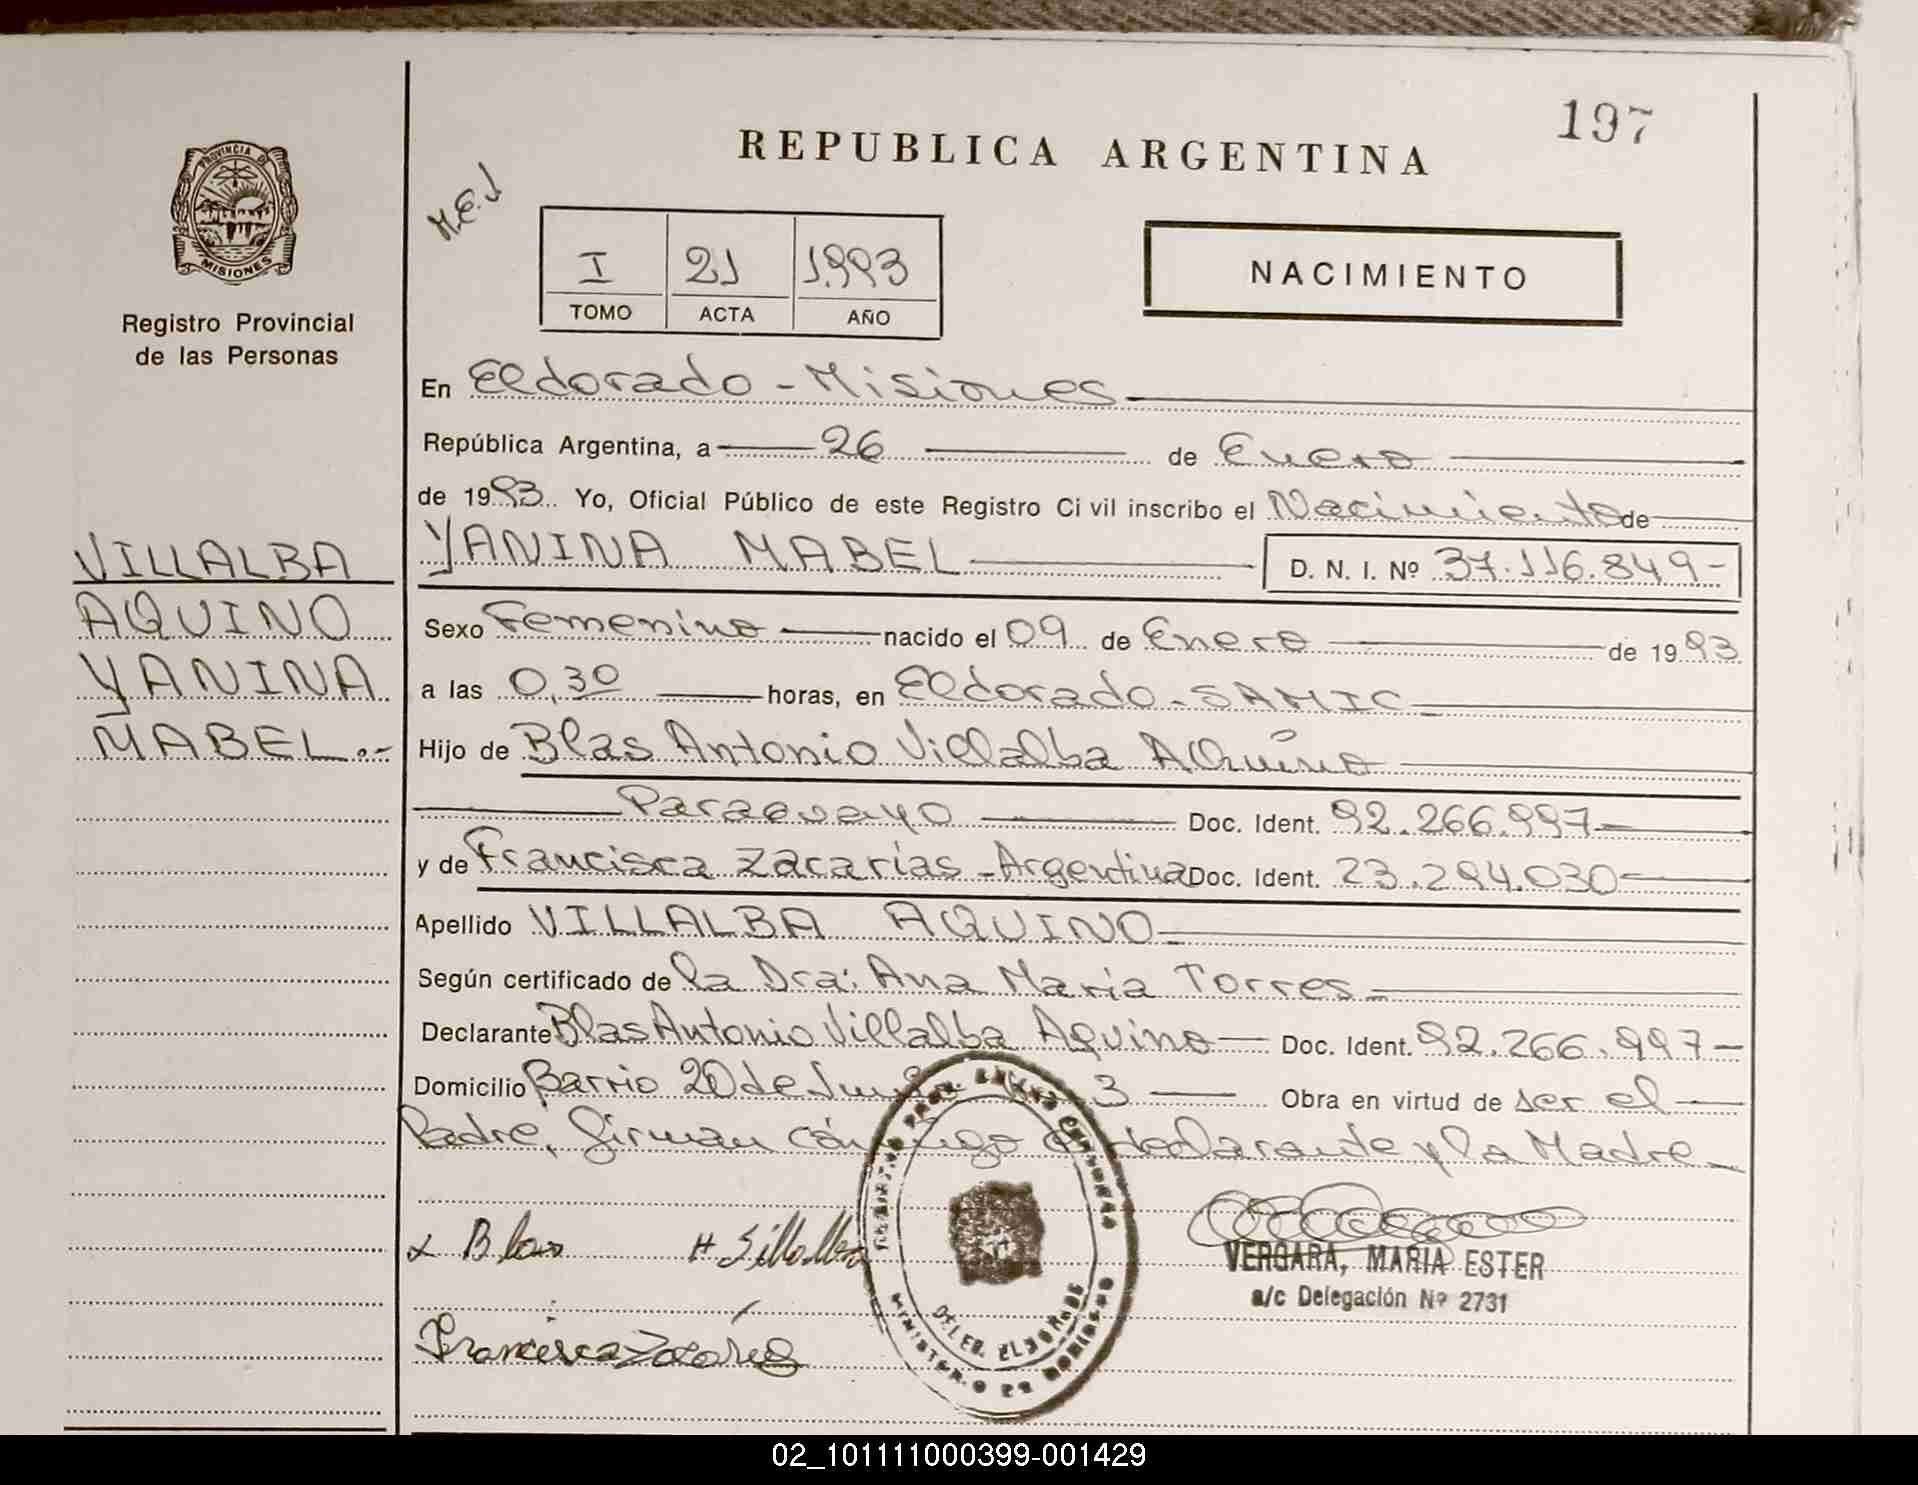 197
REPUBLICA ARGENTINA
PROVINCIA DE
MISIONES
Registro Provincial
de las Personas
M.E.J
I 21 1993
TOMO ACTA AÑO
NACIMIENTO
En Eldorado - Misiones
República Argentina, a 26 de Enero
de 1993 Yo, Oficial Público de este Registro Civil inscribo el Nacimiento de
VILLALBA
AQUINO
YANINA
MABEL.-
YANINA MABEL D. N. I. Nº 37.116.849-
Sexo Femenino nacido el 09 de Enero de 1993
a las 0,30 horas, en Eldorado - SAMIC
Hijo de Blas Antonio Villalba AQuino
Paraguayo Doc. Ident. 92.266.997-
y de Francisca Zacarías - Argentina Doc. Ident. 23.294.030-
Apellido VILLALBA AQUINO
Según certificado de la Dra: Ana María Torres
Declarante Blas Antonio Villalba Aquino Doc. Ident. 92.266.997-
Domicilio Barrio 20 de Junio 3 Obra en virtud de ser el
Padre, firman conmigo el declarante y la Madre
Blas Villalba
VERGARA, MARIA ESTER
a/c Delegación Nº 2731
Francisca Zacarías
02_101111000399-001429